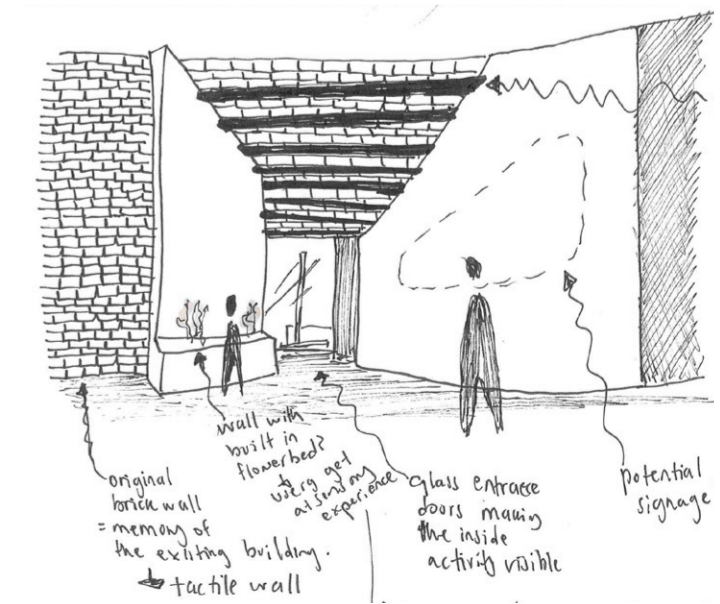 original
brick wall
= memory of
the existing building.
↳ tactile wall
wall with
built in
flowerbed?
↳ users get
a sensory
experience
glass entrance
doors making
the inside
activity visible
potential
signage